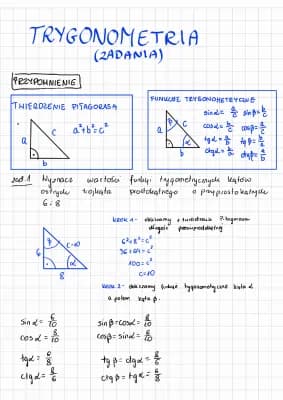 TRYGONOMETRIA
(ZADANIA)
PRZYPOMNIENIE
TWIERDZENIE PITAGORASA
a
c
b
a²+b²=c²
FUNKCJE TRYGONOMETRYCZNE
a
β
c
b
α
sinα= a/c sinβ= b/c
cosα= b/c cosβ= a/c
tgα= a/b tgβ= b/a
ctgα= b/a ctgβ= a/b
zad.1 Wyznacz wartości funkcji trygonometrycznych kątów
ostrych trójkąta prostokątnego o przyprostokątnych
6 i 8
6
β
c=10
α
8
KROK 1 - obliczamy z twierdzenia Pitagorasa
długość przeciwprostokątnej
6²+8²=c²
36+64=c²
100=c²
c=10
KROK 2 - obliczamy funkcje trygonometryczne kąta α
a potem kąta β.
sinα= 6/10 sinβ=cosα= 8/10
cosα= 8/10 cosβ=sinα= 6/10
tgα= 6/8 tgβ=ctgα= 8/6
ctgα= 8/6 ctgβ=tgα= 6/8